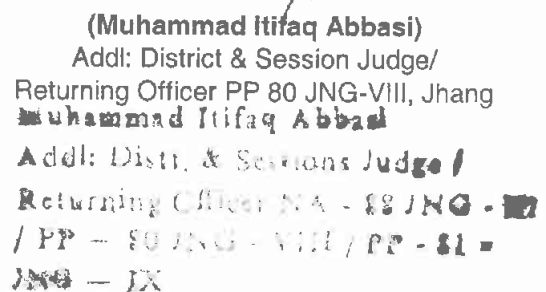 (Muhammad Itifaq Abbasi)
Addl: District & Session Judge/
Returning Officer PP 80 JNG-VIII, Jhang
Muhammad Itifaq Abbasi
Addl: Distt. & Sessions Judge /
Returning Officer NA - 88 JNG -
/ PP - 80 JNG - VIII / PP - 81 =
JNG - IX